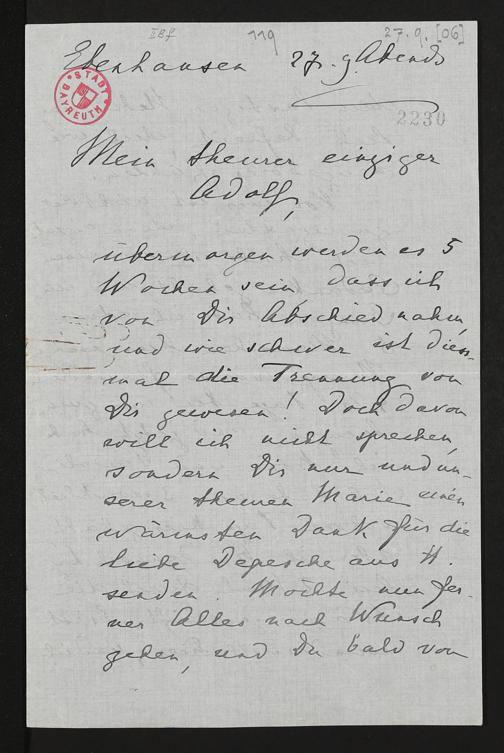 IIBf 119 27.9.[06]
Ebenhausen 27. 9 Abends
STADT BAYREUTH
2230
Mein theurer einziger
Adolf,
übermorgen werden es 5
Wochen sein dass ich
von Dir Abschied nahm,
und wie schwer ist dies-
mal die Trennung von
Dir gewesen! Doch davon
will ich nicht sprechen,
sondern Dir nur und un-
serer theuren Marie einen
wärmsten Dank für die
liebe Depesche aus H.
senden. Möchte nun fer-
ner Alles nach Wunsch
gehen, und Du bald von